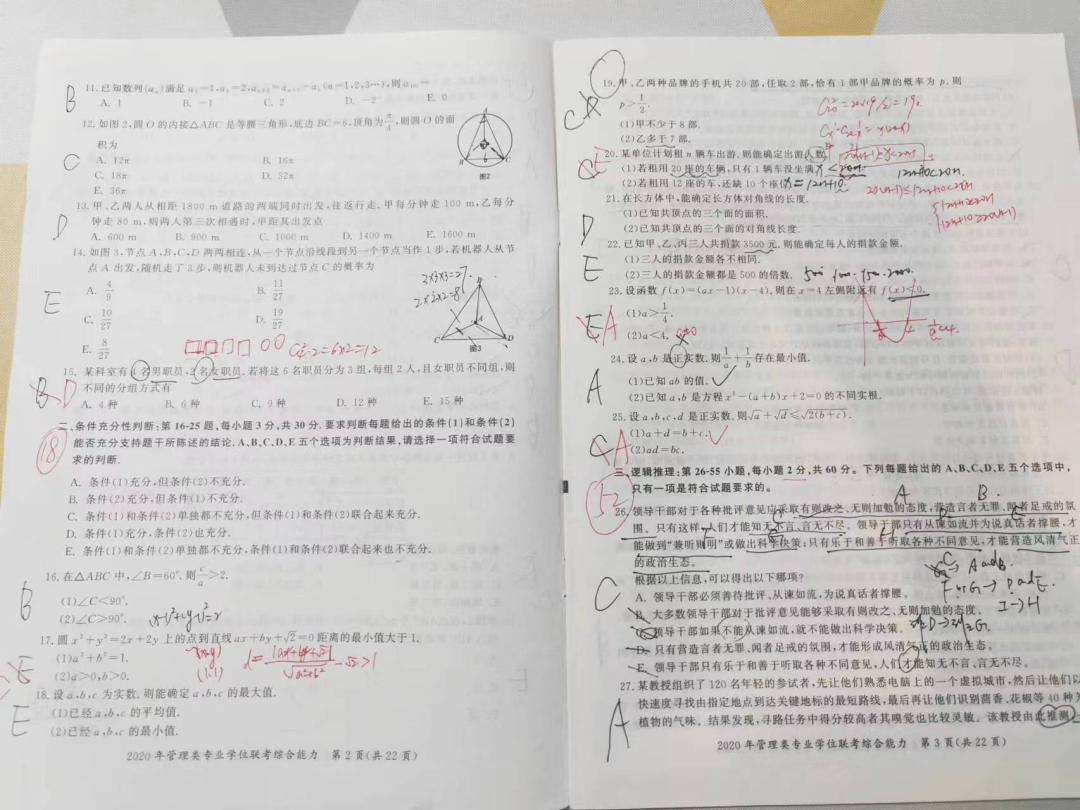 11.已知数列{aₙ}满足a₁=1,a₂=2,aₙ₊₂=aₙ₊₁-aₙ(n=1,2,3…),则
A. 1 B. -1 C. 2 D. -2 E. 0
B
12.如图2,圆O的内接△ABC是等腰三角形,底边BC=6,顶角为π/4,则圆O的面
积为
A. 12π B. 16π
C. 18π D. 32π
E. 36π
C
图2
13.甲、乙两人从相距1800 m道路的两端同时出发,往返行走.甲每分钟走100 m,乙每分
钟走80 m,则两人第三次相遇时,甲距其出发点
A. 600 m B. 900 m C. 1000 m D. 1400 m E. 1600 m
D
14.如图3,节点A,B,C,D两两相连,从一个节点沿线段到另一个节点当作1步,若机器人从节
点A出发,随机走了3步,则机器人未到达过节点C的概率为
A. 4/9 B. 11/27
C. 10/27 D. 19/27
E. 8/27
E
3×3×3=27
2×2×2=8
图3
15.某科室有4名男职员,2名女职员.若将这6名职员分为3组,每组2人,且女职员不同组,则
不同的分组方式有
A. 4种 B. 6种 C. 9种 D. 12种 E. 15种
B D
二、条件充分性判断:第16-25题,每小题3分,共30分.要求判断每题给出的条件(1)和条件(2)
能否充分支持题干所陈述的结论.A、B、C、D、E五个选项为判断结果,请选择一项符合试题要
求的判断.
18
A. 条件(1)充分,但条件(2)不充分.
B. 条件(2)充分,但条件(1)不充分.
C. 条件(1)和条件(2)单独都不充分,但条件(1)和条件(2)联合起来充分.
D. 条件(1)充分,条件(2)也充分.
E. 条件(1)和条件(2)单独都不充分,条件(1)和条件(2)联合起来也不充分.
16.在△ABC中,∠B=60°.则c/a>2.
(1)∠C<90°.
(2)∠C>90°.
B
17.圆x²+y²=2x+2y上的点到直线ax+by+√2=0距离的最小值大于1.
(1)a²+b²=1.
(2)a>0,b>0.
(1,1)
E
18.设a,b,c为实数.则能确定a,b,c的最大值.
(1)已经a,b,c的平均值.
(2)已经a,b,c的最小值.
E
2020年管理类专业学位联考综合能力 第2页(共22页)
19.甲、乙两种品牌的手机共20部,任取2部,恰有1部甲品牌的概率为p.则
p>1/2.
(1)甲不少于8部.
(2)乙多于7部.
C
20.某单位计划租n辆车出游.则能确定出游人数.
(1)若租用20座的车辆,只有1辆车没坐满.
(2)若租用12座的车,还缺10个座位.
E
21.在长方体中,能确定长方体对角线的长度.
(1)已知共顶点的三个面的面积.
(2)已知共顶点的三个面的对角线长度.
D
22.已知甲、乙、丙三人共捐款3500元.则能确定每人的捐款金额.
(1)三人的捐款金额各不相同.
(2)三人的捐款金额都是500的倍数.
E
23.设函数f(x)=(ax-1)(x-4).则在x=4左侧附近有f(x)<0.
(1)a>1/4.
(2)a<4.
E A
24.设a,b是正实数.则1/a+1/b存在最小值.
(1)已知ab的值.
(2)已知a,b是方程x²-(a+b)x+2=0的不同实根.
A
25.设a,b,c,d是正实数.则√a+√d≤√2(b+c).
(1)a+d=b+c.
(2)ad=bc.
C A
三、逻辑推理:第26-55小题,每小题2分,共60分。下列每题给出的A、B、C、D、E五个选项中,
只有一项是符合试题要求的。
52
A B
26.领导干部对于各种批评意见应采取有则改之、无则加勉的态度,营造言者无罪、闻者足戒的氛
围。只有这样,人们才能知无不言、言无不尽。领导干部只有从谏如流并为说真话者撑腰,才
能做到“兼听则明”或做出科学决策;只有乐于和善于听取各种不同意见,才能营造风清气正
的政治生态。
根据以上信息,可以得出以下哪项?
A. 领导干部必须善待批评、从谏如流,为说真话者撑腰。
B. 大多数领导干部对于批评意见能够采取有则改之、无则加勉的态度。
C. 领导干部如果不能从谏如流,就不能做出科学决策。
D. 只有营造言者无罪、闻者足戒的氛围,才能形成风清气正的政治生态。
E. 领导干部只有乐于和善于听取各种不同意见,人们才能知无不言、言无不尽。
C
I→H
27.某教授组织了120名年轻的参试者,先让他们熟悉电脑上的一个虚拟城市,然后让他们以
快速度寻找由指定地点到达关键地标的最短路线,最后再让他们识别茴香、花椒等40种
植物的气味。结果发现,寻路任务中得分较高者其嗅觉也比较灵敏。该教授由此推测
A
2020年管理类专业学位联考综合能力 第3页(共22页)